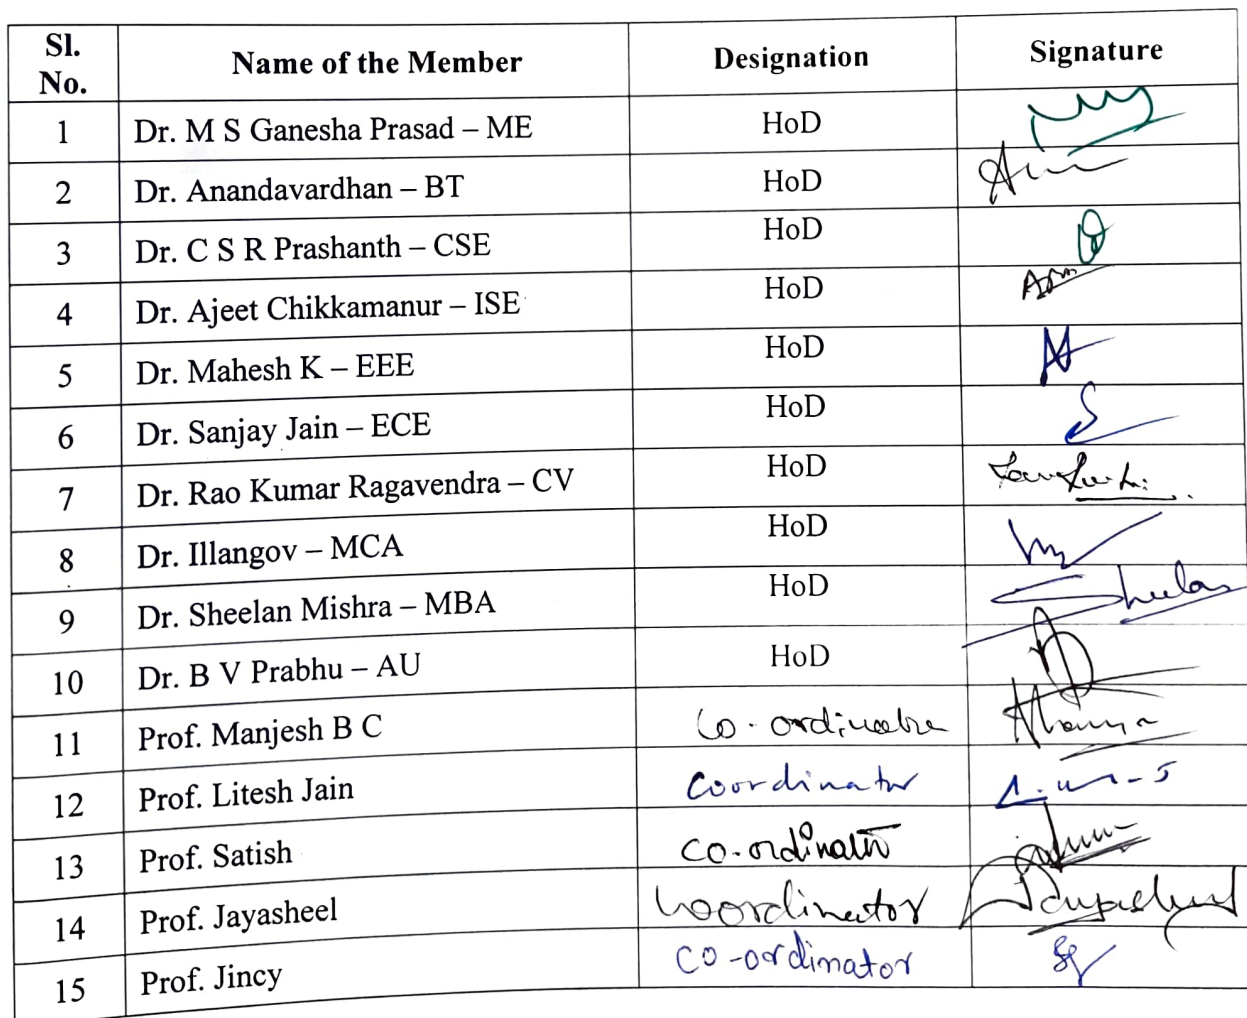 Sl. No. Name of the Member Designation Signature
1 Dr. M S Ganesha Prasad – ME HoD
2 Dr. Anandavardhan – BT HoD
3 Dr. C S R Prashanth – CSE HoD
4 Dr. Ajeet Chikkamanur – ISE HoD
5 Dr. Mahesh K – EEE HoD
6 Dr. Sanjay Jain – ECE HoD
7 Dr. Rao Kumar Ragavendra – CV HoD
8 Dr. Illangov – MCA HoD
9 Dr. Sheelan Mishra – MBA HoD Sheelan
10 Dr. B V Prabhu – AU HoD
11 Prof. Manjesh B C Co-ordinator
12 Prof. Litesh Jain Coordinator
13 Prof. Satish Co-ordinator
14 Prof. Jayasheel Coordinator Jayasheel
15 Prof. Jincy Co-ordinator